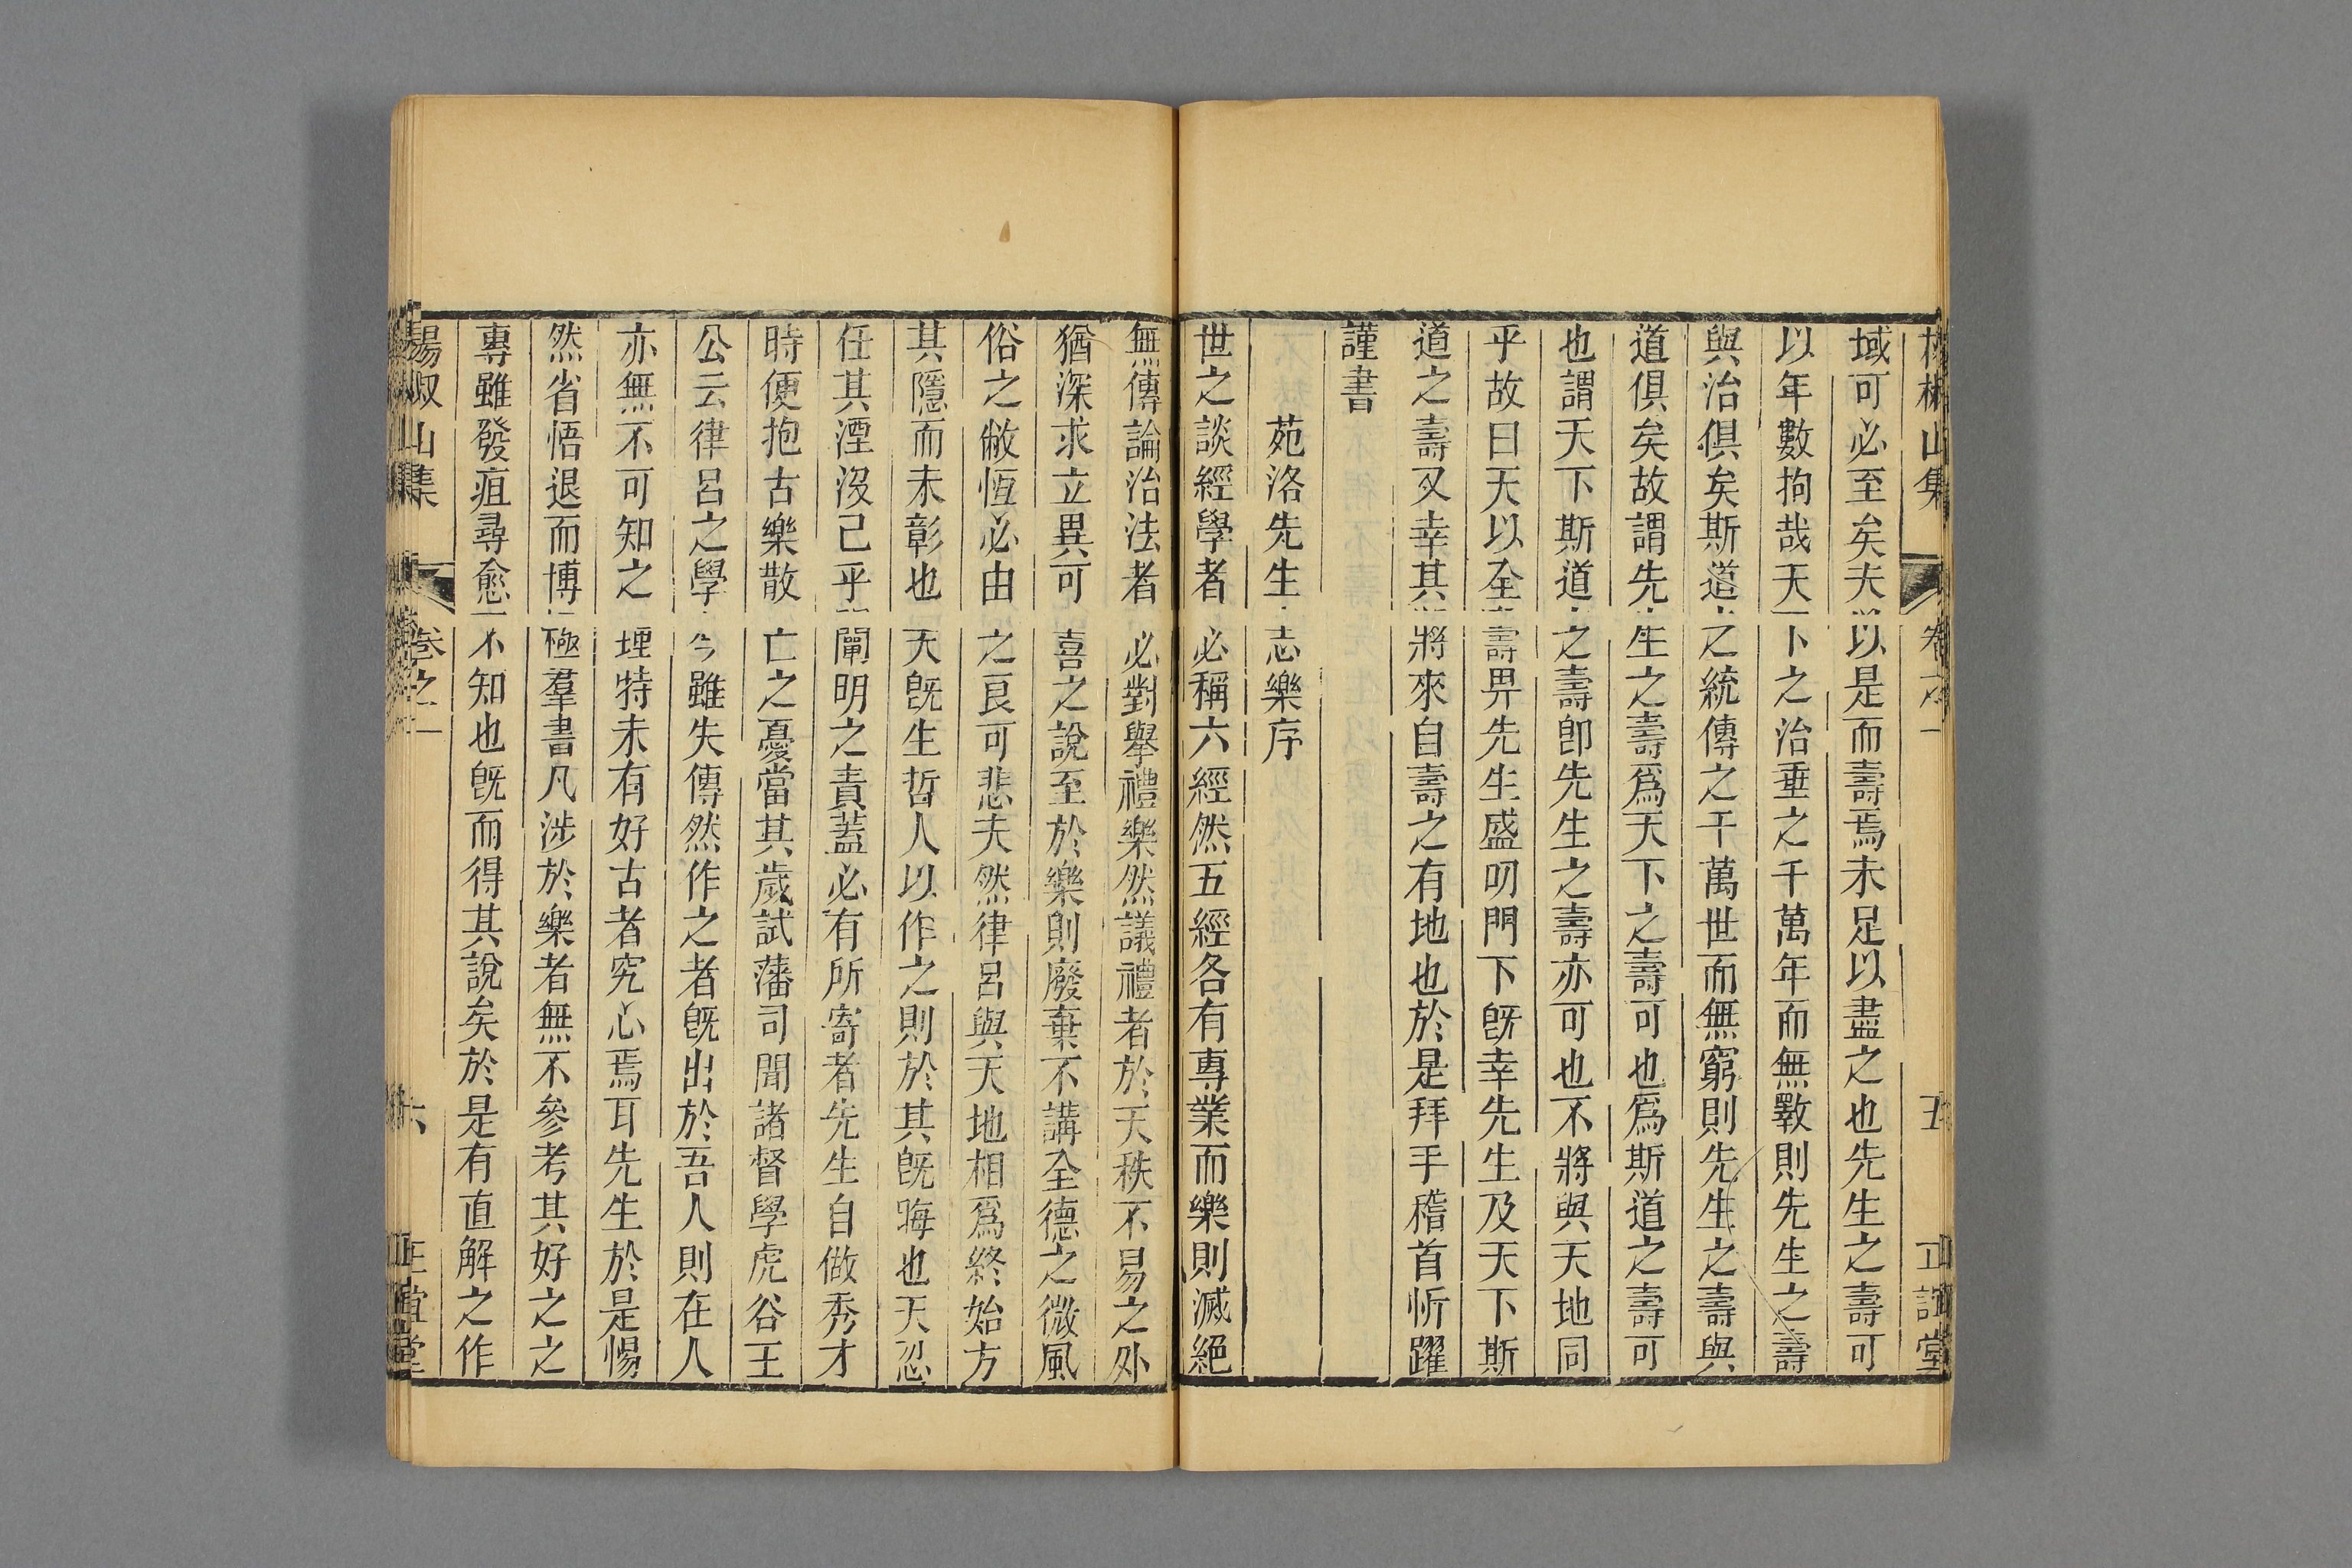 域可必至矣夫以是而壽焉未足以盡之也先生之壽可
以年數拘哉天下之治垂之千萬年而無斁則先生之壽
與治俱矣斯道之統傳之千萬世而無窮則先生之壽與
道俱矣故謂先生之壽爲天下之壽可也爲斯道之壽可
也謂天下斯道之壽卽先生之壽亦可也不將與天地同
乎故曰天以全壽畀先生盛叨門下旣幸先生及天下斯
道之壽又幸其將來自壽之有地也於是拜手稽首忻躍
謹書
苑洛先生志樂序
世之談經學者必稱六經然五經各有專業而樂則滅絕
無傳論治法者必對舉禮樂然議禮者於天秩不易之外
猶深求立異可喜之說至於樂則廢棄不講全德之微風
俗之敝恆必由之良可悲夫然律呂與天地相爲終始方
其隱而未彰也天旣生哲人以作之則於其旣晦也天忍
任其湮沒己乎闡明之責蓋必有所寄者先生自做秀才
時便抱古樂散亡之憂當其歲試藩司聞諸督學虎谷王
公云律呂之學今雖失傳然作之者旣出於吾人則在人
亦無不可知之理特未有好古者究心焉耳先生於是惕
然省悟退而博極羣書凡涉於樂者無不參考其好之之
專雖發疽尋愈不知也旣而得其說矣於是有直解之作
楊椒山集 卷之一 六 正誼堂